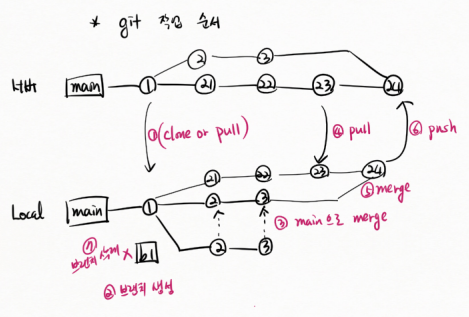 * git 작업 순서
② ③
서버 main ① ㉑ ㉒ ㉓ ㉔
①(clone or pull) ④ pull ⑥ push
㉑ ㉒ ㉓ ㉔
⑤ merge
Local main ① ② ③
③ main으로 merge
⑦ 브랜치 삭제 × b1 ② ③
② 브랜치 생성